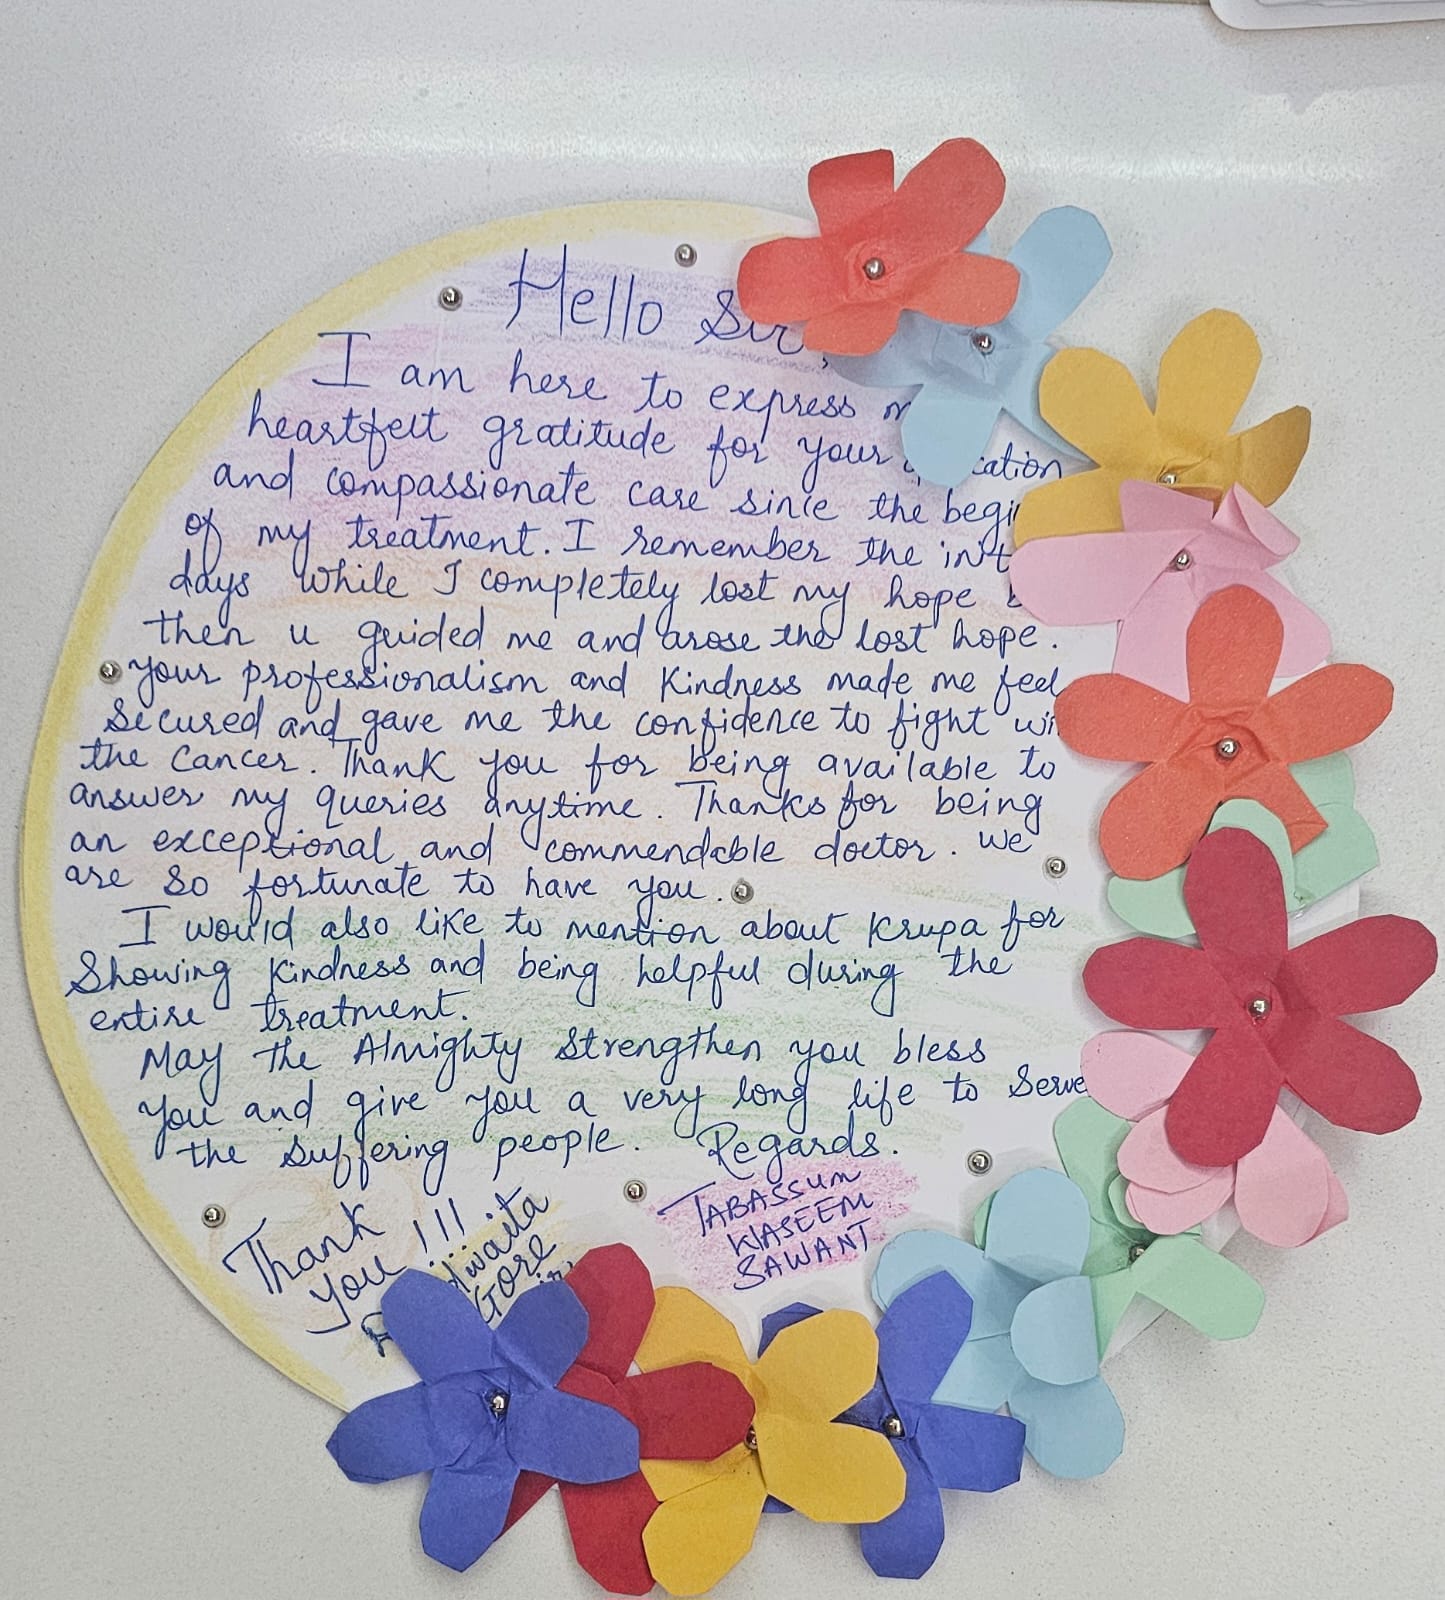 Hello Sir,
I am here to express
heartfelt gratitude for your
and compassionate care since the
of my treatment. I remember the
days while I completely lost my hope
then u guided me and arose the lost hope.
Your professionalism and kindness made me feel
secured and gave me the confidence to fight
the cancer. Thank you for being available to
answer my queries anytime. Thanks for being
an exceptional and commendable doctor. We
are so fortunate to have you.
I would also like to mention about Krupa for
showing kindness and being helpful during the
entire treatment.
May the Almighty strengthen you bless
you and give you a very long life to serve
the suffering people. Regards.
Thank
you!!!
Gore
TABASSUM
WASEEM
SAWANT